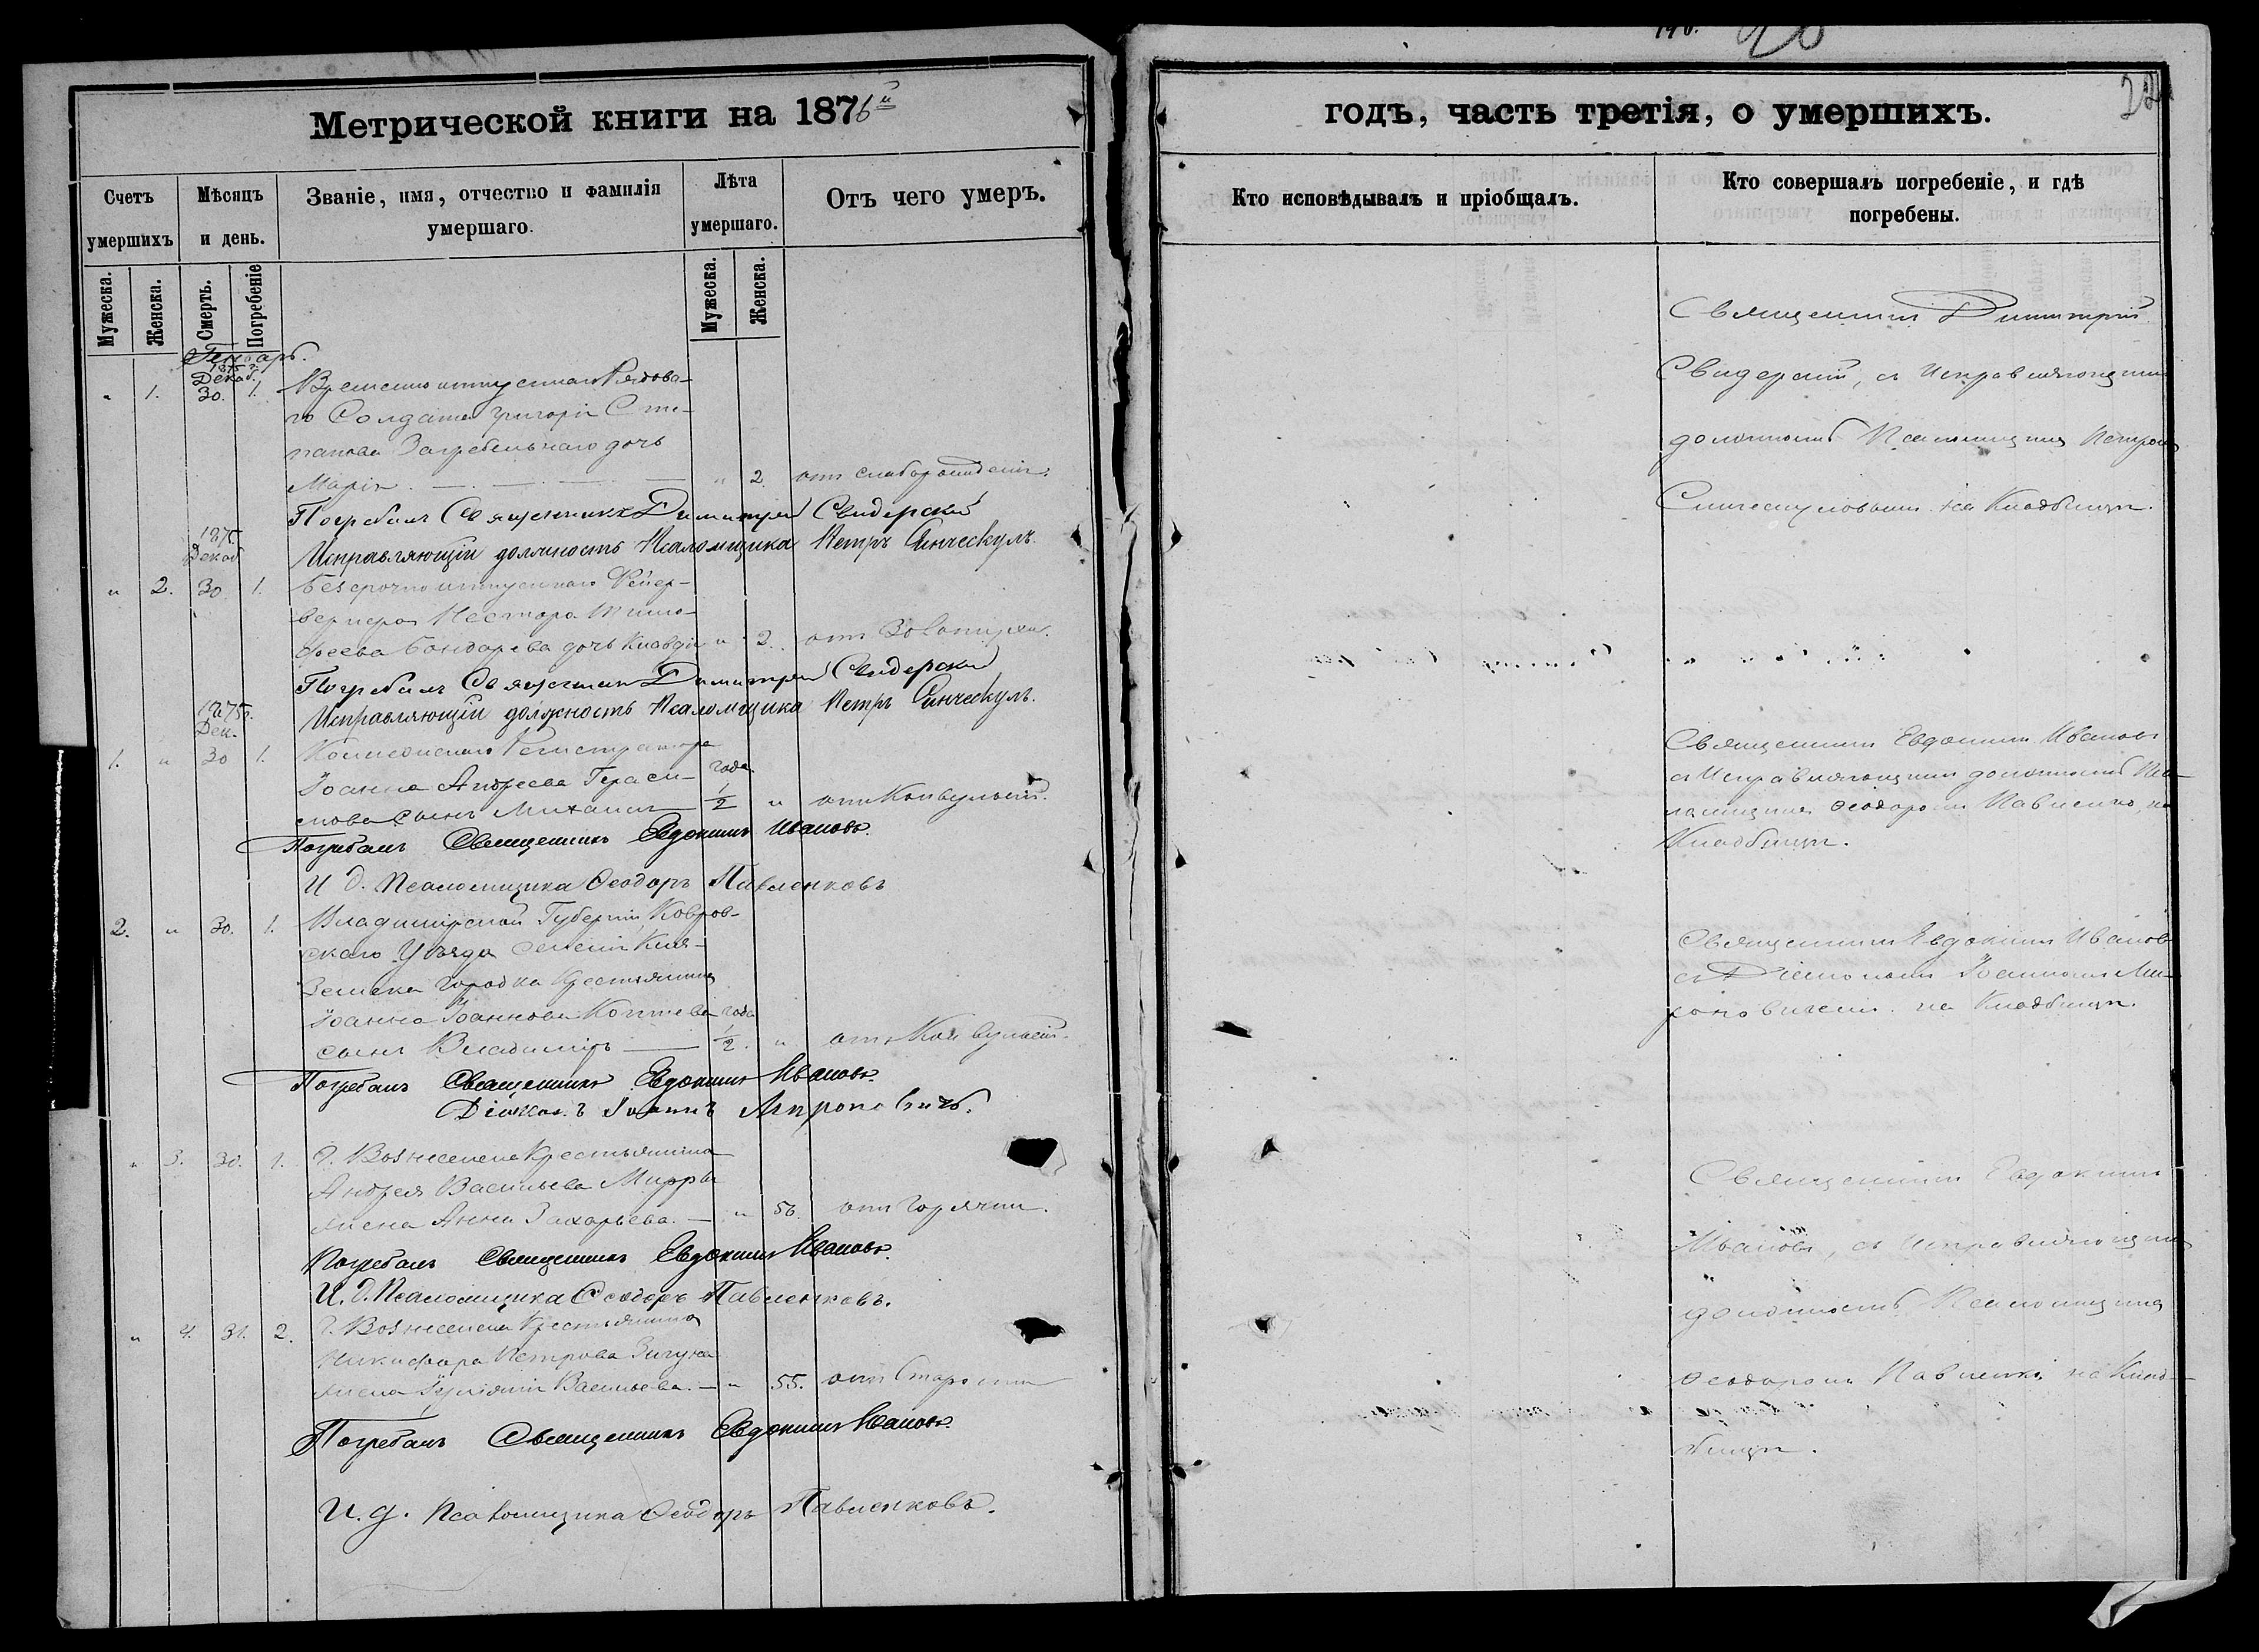 Метрической книги на 1876й
Счетъ умершихъ
Мѣсяцъ и день.
Званіе, имя, отчество и фамилія умершаго.
Лѣта умершаго.
Отъ чего умеръ.
Мужеска.
Женска.
Смерть.
Погребеніе
Мужеска.
Женска.
Генварь.
1875 г.
Декаб.
" 1. 30. 1. Временно отпускнаго Рядова-
го Солдата Григорія Сте-
панова Загребельнаго дочь
Марія " 2. отъ слаборожденія.
Погребалъ Священникъ Димитрій Свидерскій
Исправляющій должность Псаломщика Петръ Синческулъ.
1875
Декаб
" 2. 30. 1. Безсрочноотпускнаго Фейер-
веркера Нестора Тимо-
феева Бондарева дочь Клавдія " 2. отъ Золотухи.
Погребалъ Священникъ Димитрій Свидерскій
Исправляющій должность Псаломщика Петръ Синческулъ.
1875г.
Дек.
1. " 30 1. Коллежскаго Регистратора
Іоанна Андреева Гераси-
мова сынъ Михаилъ года 1/2 " отъ Конвульсій.
Погребалъ Священникъ Евдокимъ Ивановъ.
И. д. Псаломщика Ѳеодоръ Павленковъ
2. " 30. 1. Владимірской Губерніи, Ковров-
скаго Уѣзда селенія Кля-
земска городка Крестьянина
Іоанна Іоаннова Коптева
сынъ Владиміръ года 1/2. " отъ Конвульсій.
Погребалъ Священникъ Евдокимъ Ивановъ.
Діаконъ Іоаннъ Мироновичъ.
" 3. 30. 1. г. Вознесенска Крестьянина
Андрея Васильева Мирры
жена Анна Захарьева. " 56. отъ горячки.
Погребалъ Священникъ Евдокимъ Ивановъ.
И. д. Псаломщика Ѳеодоръ Павленковъ.
" 4. 31. 2. г. Вознесенска Крестьянина
Никифора Петрова
жена Іуліанія Васильева. " 55. отъ Старости
Погребалъ Священникъ Евдокимъ Ивановъ.
И. д. Псаломщика Ѳеодоръ Павленковъ.
20
22
годъ, часть третія, о умершихъ.
Кто исповѣдывалъ и пріобщалъ.
Кто совершалъ погребеніе, и гдѣ погребены.
Священникъ Димитрій
Свидерскій, съ Исправляющимъ
должность Псаломщика Петромъ
Синческуловымъ на Кладбищѣ.
Священникъ Евдокимъ Ивановъ
съ Исправляющимъ должность Пса-
ломщика Ѳеодоромъ Павленко, на
Кладбищѣ.
Священникъ Евдокимъ Ивановъ
съ Діакономъ Іоанномъ Ми-
роновичемъ на Кладбищѣ.
Священникъ Евдокимъ
Ивановъ, съ Исправляющимъ
должность Псаломщика
Ѳеодоромъ Павленко на Клад-
бищѣ.